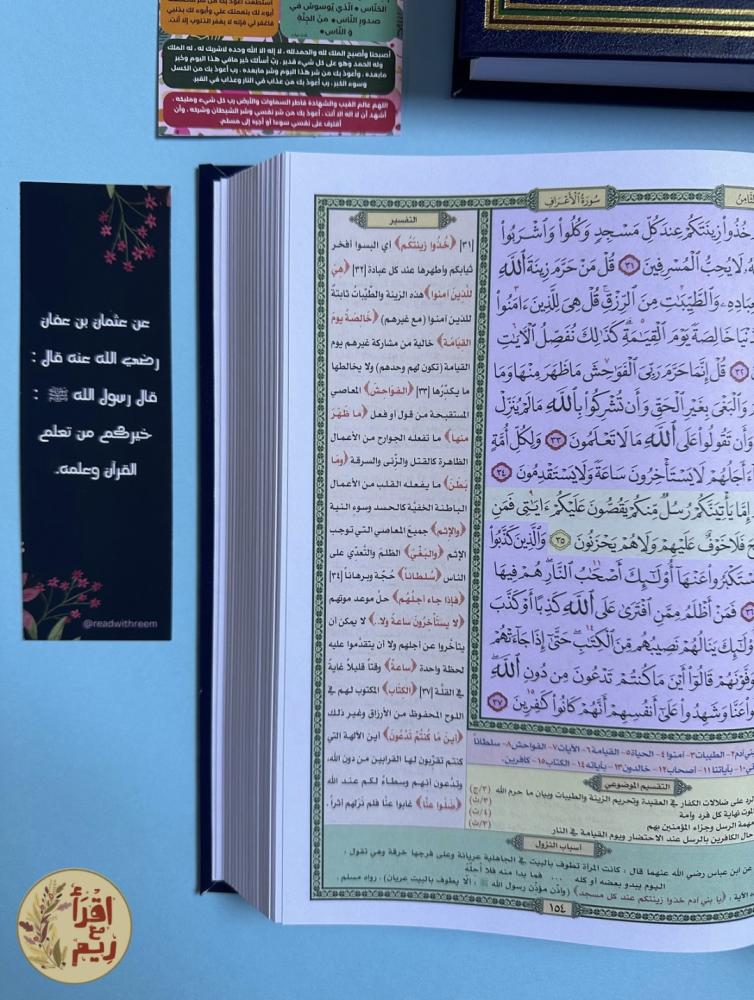 الخَنَّاس * الَّذِي يُوَسْوِسُ فِي
صدورِ النَّاس * منَ الجِنَّةِ
وَ النَّاس *
أصبحنا وأصبح الملك لله والحمدلله ، لا إله الا الله وحده لاشريك له ، له الملك
وله الحمد وهو على كل شيء قدير ، ربّ أسألك خير مافي هذا اليوم وخير
مابعده ، وأعوذ بك من شر هذا اليوم وشر مابعده ، رب أعوذ بك من الكسل
وسوء الكبر ، رب أعوذ بك من عذاب في النار وعذاب في القبر.
اللهم عالم الغيب والشهادة فاطر السماوات والأرض رب كل شيء ومليكه ،
أشهد أن لا اله الا أنت ، أعوذ بك من شر نفسي وشر الشيطان وشركه ، وأن
أقترف على نفسي سوءا أو أجره إلى مسلم.
عن عثمان بن عفان
رضي الله عنه قال :
قال رسول الله ﷺ :
خيركم من تعلم
القرآن وعلمه.
@readwithreem
سُورَةُ الأَعْرَافِ
خُذُوا۟ زِينَتَكُمْ عِندَ كُلِّ مَسْجِدٍ وَكُلُوا۟ وَٱشْرَبُوا۟
لَا يُحِبُّ ٱلْمُسْرِفِينَ ٣١ قُلْ مَنْ حَرَّمَ زِينَةَ ٱللَّهِ
وَٱلطَّيِّبَـٰتِ مِنَ ٱلرِّزْقِ قُلْ هِىَ لِلَّذِينَ ءَامَنُوا۟
خَالِصَةً يَوْمَ ٱلْقِيَـٰمَةِ كَذَٰلِكَ نُفَصِّلُ ٱلْـَٔايَـٰتِ
٣٢ قُلْ إِنَّمَا حَرَّمَ رَبِّىَ ٱلْفَوَٰحِشَ مَا ظَهَرَ مِنْهَا وَمَا
وَٱلْبَغْىَ بِغَيْرِ ٱلْحَقِّ وَأَن تُشْرِكُوا۟ بِٱللَّهِ مَا لَمْ يُنَزِّلْ
وَأَن تَقُولُوا۟ عَلَى ٱللَّهِ مَا لَا تَعْلَمُونَ ٣٣ وَلِكُلِّ أُمَّةٍ
أَجَلُهُمْ لَا يَسْتَأْخِرُونَ سَاعَةً وَلَا يَسْتَقْدِمُونَ ٣٤
إِمَّا يَأْتِيَنَّكُمْ رُسُلٌ مِّنكُمْ يَقُصُّونَ عَلَيْكُمْ ءَايَـٰتِى فَمَنِ
فَلَا خَوْفٌ عَلَيْهِمْ وَلَا هُمْ يَحْزَنُونَ ٣٥ وَٱلَّذِينَ كَذَّبُوا۟
عَنْهَآ أُو۟لَـٰٓئِكَ أَصْحَـٰبُ ٱلنَّارِ هُمْ فِيهَا
٣٦ فَمَنْ أَظْلَمُ مِمَّنِ ٱفْتَرَىٰ عَلَى ٱللَّهِ كَذِبًا أَوْ كَذَّبَ
يَنَالُهُمْ نَصِيبُهُم مِّنَ ٱلْكِتَـٰبِ حَتَّىٰٓ إِذَا جَآءَتْهُمْ
قَالُوٓا۟ أَيْنَ مَا كُنتُمْ تَدْعُونَ مِن دُونِ ٱللَّهِ
عَنَّا وَشَهِدُوا۟ عَلَىٰٓ أَنفُسِهِمْ أَنَّهُمْ كَانُوا۟ كَـٰفِرِينَ ٣٧
التفسير
[٣١] ﴿خُذُوا زينَتَكُم﴾ أي البسوا أفخر
ثيابكم وأطهرها عند كل عبادة [٣٢] ﴿هِيَ
للذِينَ آمنوا﴾ هذه الزينة والطَّيّبات ثابتةٌ
للذين آمنوا (مع غيرهم) ﴿خَالصَةً يومَ
القيَامَة﴾ خالية من مشاركة غيرهم يوم
القيامة (تكون لهم وحدهم) ولا يخالطها
ما يكدّرها [٣٣] ﴿الفَواحِشَ﴾ المعاصي
المستقبحة من قول أو فعل ﴿ما ظَهَرَ
منها﴾ ما تفعله الجوارح من الأعمال
الظاهرة كالقتل والزّنى والسرقة ﴿وما
بَطَنَ﴾ ما يفعله القلب من الأعمال
الباطنة الخفيَّة كالحسد وسوء النية
﴿والإثم﴾ جميعَ المعاصي التي توجب
الإثم ﴿والبَغْيَ﴾ الظلمَ والتَّعدّي على
الناس ﴿سُلطانا﴾ حُجّة وبرهاناً [٣٤]
﴿فإذا جاءَ أجلُهُم﴾ حلّ موعد موتهم
﴿لا يستأخرُونَ ساعةً ولا..﴾ لا يمكن أن
يتأخّروا عن أجلهم ولا أن يتقدّموا عليه
لحظة واحدة ﴿ساعةً﴾ وقتاً قليلاً غايةً
في القلّة [٣٧] ﴿الكتَاب﴾ المكتوب لهم في
اللوح المحفوظ من الأرزاق وغير ذلك
﴿أينَ ما كُنتُم تَدْعُونَ﴾ أين الآلهة التي
كنتم تقرّبون لها القرابين من دون الله،
وتدّعون أنهم وسطاءُ لكم عند الله
﴿ضَلُّوا عنَّا﴾ غابوا عنّا فلم نَرَلهم أثراً.
٢- الطيبات ٣- آمنوا ٤- الحياة ٥- القيامة ٦- الآيات ٧- الفواحش ٨- سلطانا
بآياتنا ١١- أصحاب ١٢- خالدون ١٣- بآياته ١٤- الكتاب ١٥- كافرين.
التقسيم الموضوعي
على ضلالات الكفار في العقيدة وتحريم الزينة والطيبات وبيان ما حرم الله
نهاية كل فرد وأمة
مهمة الرسل وجزاء المؤمنين بهم
حال الكافرين بالرسل عند الاحتضار ويوم القيامة في النار
أسباب النزول
عن ابن عباس رضي الله عنهما قال : كانت المرأة تطوف بالبيت في الجاهلية عريانة وعلى فرجها خرقة وهي تقول :
اليوم يبدو بعضه أو كله ... فما بدا منه فلا أحلّه
الآية : ﴿يا بني آدم خذوا زينتكم عند كل مسجد﴾ (وأذن مؤذن رسول الله ﷺ : (ألا يطوف بالبيت عريان) ، رواه مسلم .
١٥٤
اقرأ
مع
ريم